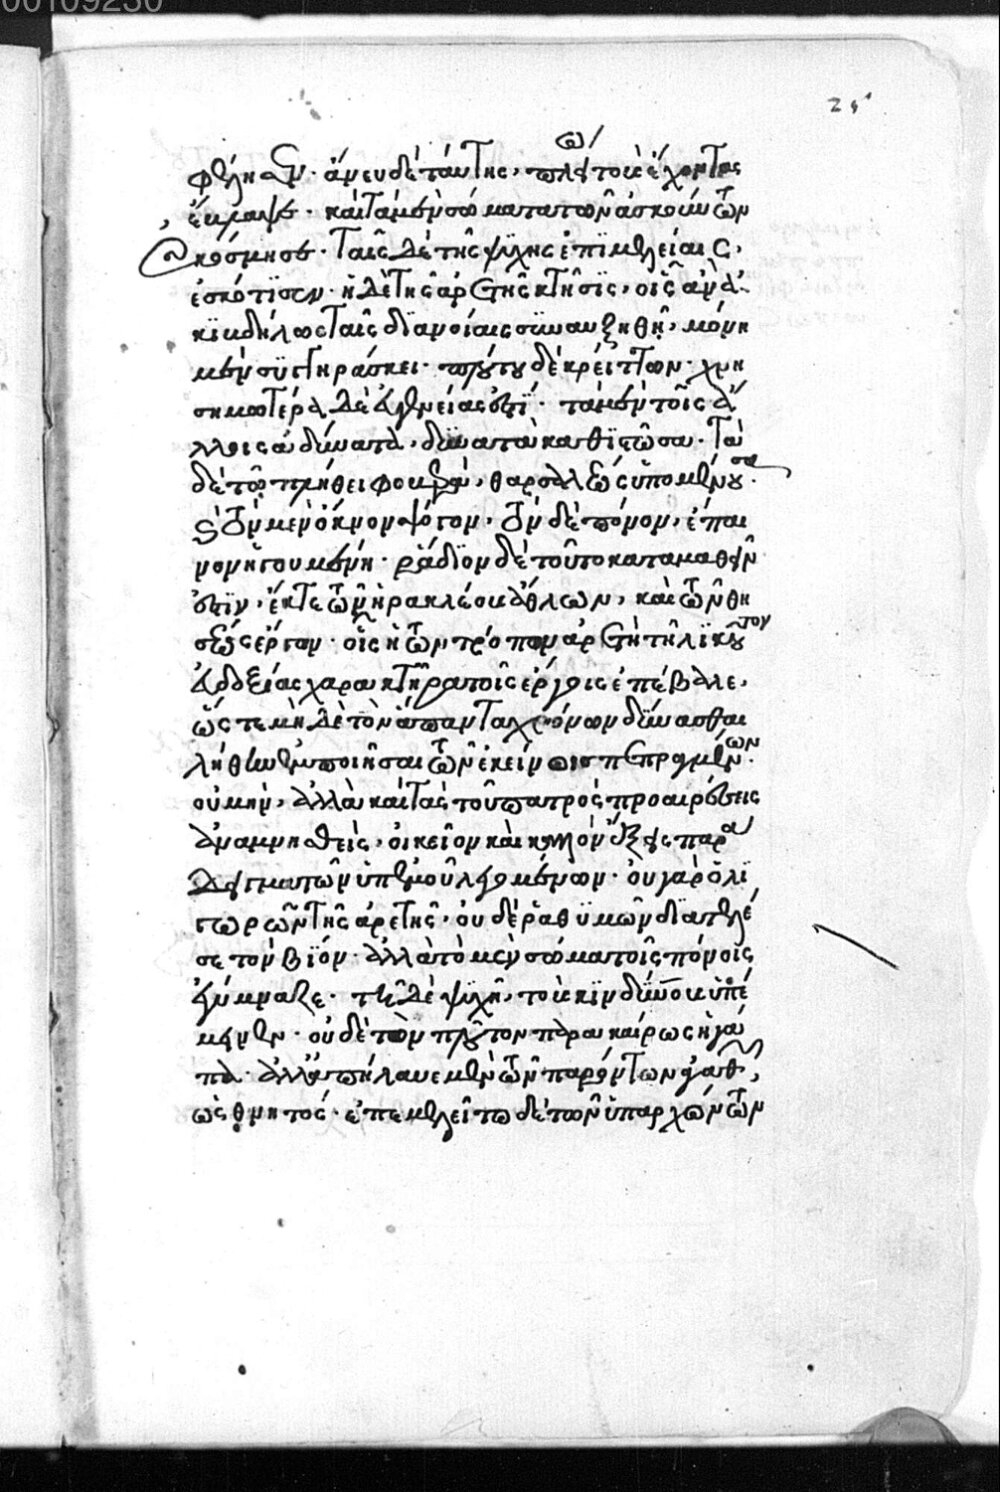 00109230
25
φέλησεν· ἄνευ δὲ ταύτης, πλείω τοὺς ἔχοντας
ἔβλαψε· καὶ τὰ μὲν σώματα τῶν ἀσκούντων
ἐκόσμησε· ταῖς δὲ τῆς ψυχῆς ἐπιμελείαις,
ἐσκότισεν· ἡ δὲ τῆς ἀρετῆς κτῆσις, οἷς ἂν ἀ
κιβδήλως ταῖς διανοίαις συναυξηθῇ, μόνη
μὲν συγγηράσκει· πλούτου δὲ κρείττων· χρη
σιμωτέρα δὲ εὐγενείας ἐστί· τὰ μὲν τοῖς ἄ
λλοις ἀδύνατα, δυνατὰ καθιστῶσα· τὰ
δὲ τῷ πλήθει φοβερὰ, θαρσαλέως ὑπομένουσα·
καὶ τὸν μὲν ὄκνον ψόγον, τὸν δὲ πόνον, ἔπαι
νον ἡγουμένη· ῥᾴδιον δὲ τοῦτο καταμαθεῖν
ἐστιν, ἔκ τε τῶν ἡρακλέους ἄθλων, καὶ τῶν θη
σέως ἔργων· οἷς ἡ τῶν τρόπων ἀρετὴ τηλικοῦτον
εὐδοξίας χαρακτῆρα τοῖς ἔργοις ἐπέβαλε,
ὥστε μὴ δὲ τὸν ἅπαντα χρόνον δύνασθαι
λήθην ἐμποιῆσαι τῶν ἐκείνοις πεπραγμένων·
οὐ μὴν, ἀλλὰ καὶ τὰς τοῦ πατρὸς προαιρέσεις
ἀναμνησθεὶς, οἰκεῖον καὶ καλὸν ἕξεις παρά
δειγμα τῶν ὑπ' ἐμοῦ λεγομένων· οὐ γὰρ ὀλι
γωρῶν τῆς ἀρετῆς, οὐδὲ ῥαθυμῶν διετέλε
σε τὸν βίον· ἀλλὰ τὸ μὲν σῶμα τοῖς πόνοις
ἐγύμναζε· τῇ δὲ ψυχῇ, τοὺς κινδύνους ὑπέ
μενεν· οὐδὲ τὸν πλοῦτον παρακαίρως ἠγά
πα· ἀλλ' ἀπήλαυε μὲν τῶν παρόντων ἀγαθῶν,
ὡς θνητός· ἐπεμελεῖτο δὲ τῶν ὑπαρχόντων